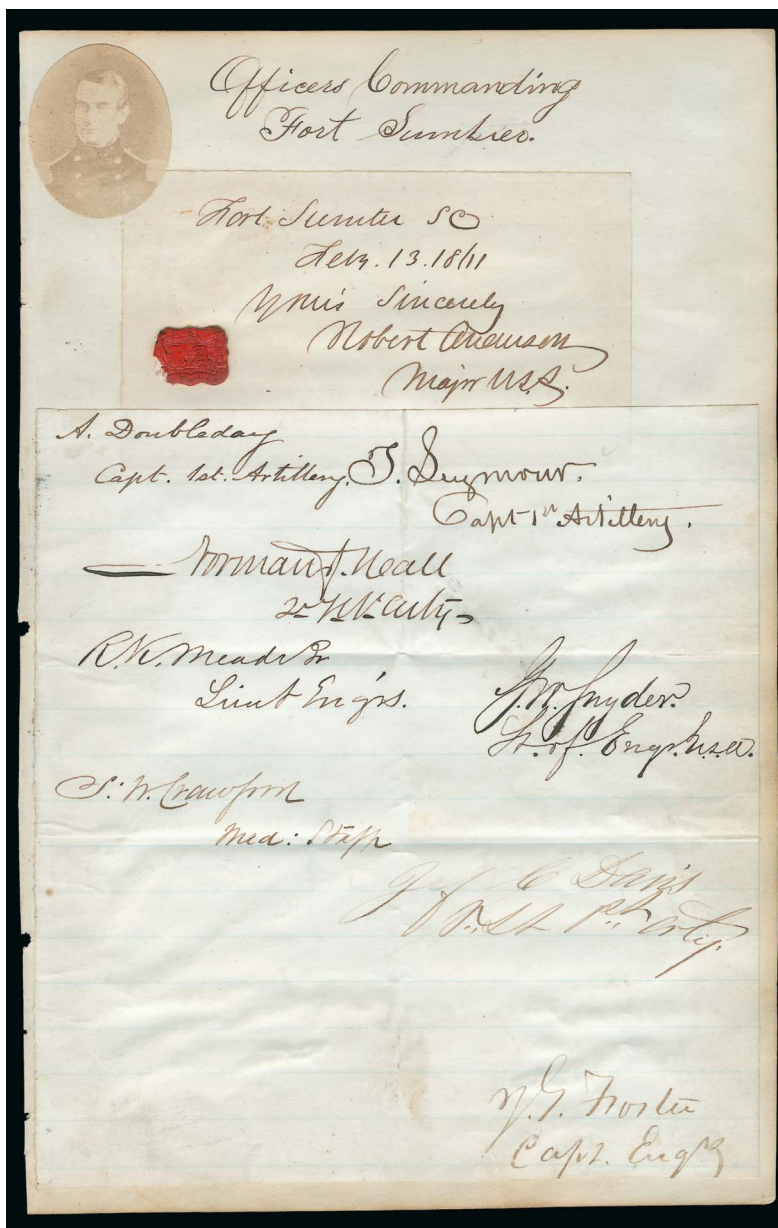 Officers Commanding
Fort Sumter.
Fort Sumter SC
Feby. 13. 1861
Yours Sincerely
Robert Anderson
Major U.S.A.
A. Doubleday
Capt. 1st. Artillery.
T. Seymour.
Capt 1st Artillery.
Norman J. Hall
2d Lt. 1st Arty
R. K. Meade Jr
Lieut Engrs.
G. W. Snyder.
Lt. of Engrs. U.S.A.
S. W. Crawford
Med: Staff
Jef. C Davis
1st Lt 1st Arty.
J. G. Foster
Capt. Engrs